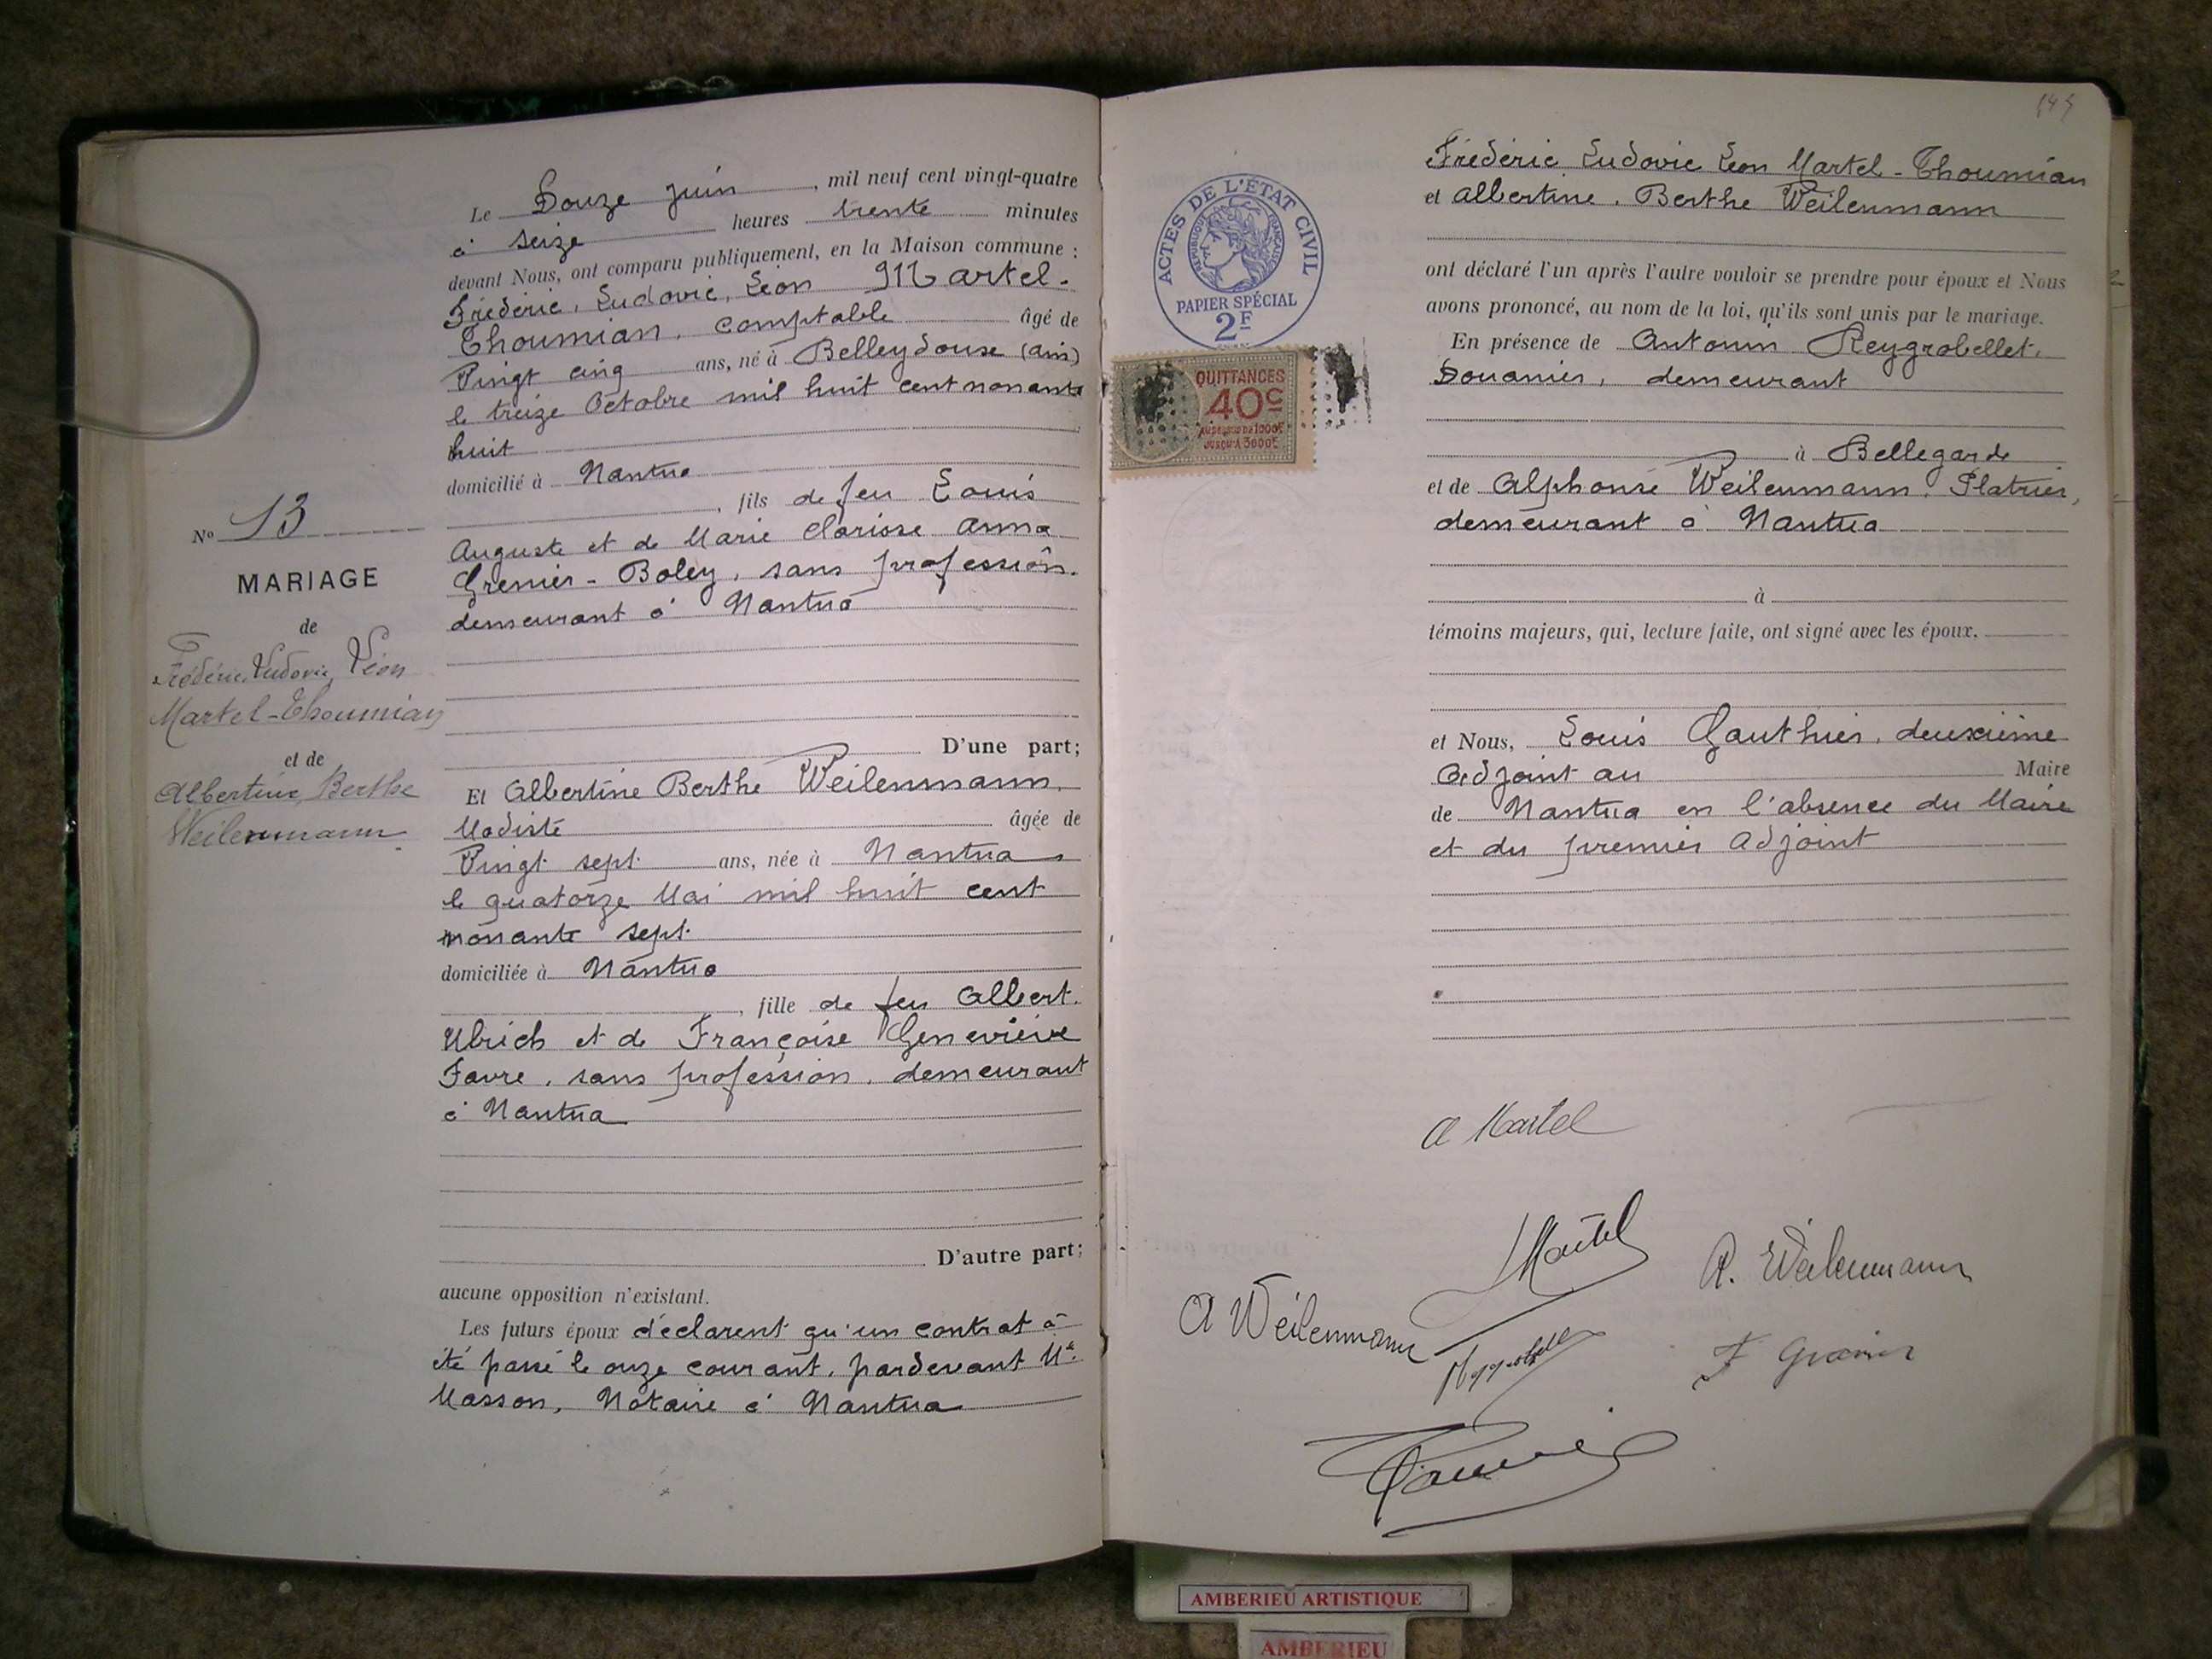 Le Douze juin, mil neuf cent vingt-quatre
à seize heures trente minutes
devant Nous, ont comparu publiquement, en la Maison commune :
Frédéric, Ludovic, Léon Martel-
Thoumian, comptable âgé de
Vingt cinq ans, né à Belleydoux (ain)
le treize Octobre mil huit cent nonante
huit
domicilié à Nantua
, fils de feu Louis
Auguste et de Marie Clarisse Anna
Grenier-Boley, sans profession.
demeurant à Nantua
D'une part;
No 13
MARIAGE
de
Frédéric, Ludovic, Léon
Martel-Thoumian
et de
Albertine, Berthe
Weilenmann
Et Albertine Berthe Weilenmann,
Modiste âgée de
Vingt sept ans, née à Nantua
le quatorze Mai mil huit cent
nonante sept
domiciliée à Nantua
, fille de feu Albert
Ulrich et de Françoise Geneviève
Favre, sans profession, demeurant
à Nantua
D'autre part;
aucune opposition n'existant.
Les futurs époux déclarent qu'un contrat a
été passé le onze courant, pardevant Me
Masson, Notaire à Nantua
ACTES DE L'ÉTAT CIVIL
RÉPUBLIQUE FRANÇAISE
PAPIER SPÉCIAL
2F
QUITTANCES
40c
AU DESSUS DE 1000F
JUSQU'À 3000F
Frédéric Ludovic Léon Martel-Thoumian
et Albertine, Berthe Weilenmann
ont déclaré l'un après l'autre vouloir se prendre pour époux et Nous
avons prononcé, au nom de la loi, qu'ils sont unis par le mariage.
En présence de Antonin Reygrobellet,
Douanier, demeurant
à Bellegarde
et de Alphonse Weilenmann, Platrier,
demeurant à Nantua
à
témoins majeurs, qui, lecture faite, ont signé avec les époux.
et Nous, Louis Gauthier, deuxième
Adjoint au Maire
de Nantua en l'absence du Maire
et du premier Adjoint
A Martel
Martel
R. Weilenmann
A Weilenmann
AMBERIEU ARTISTIQUE
AMBERIEU